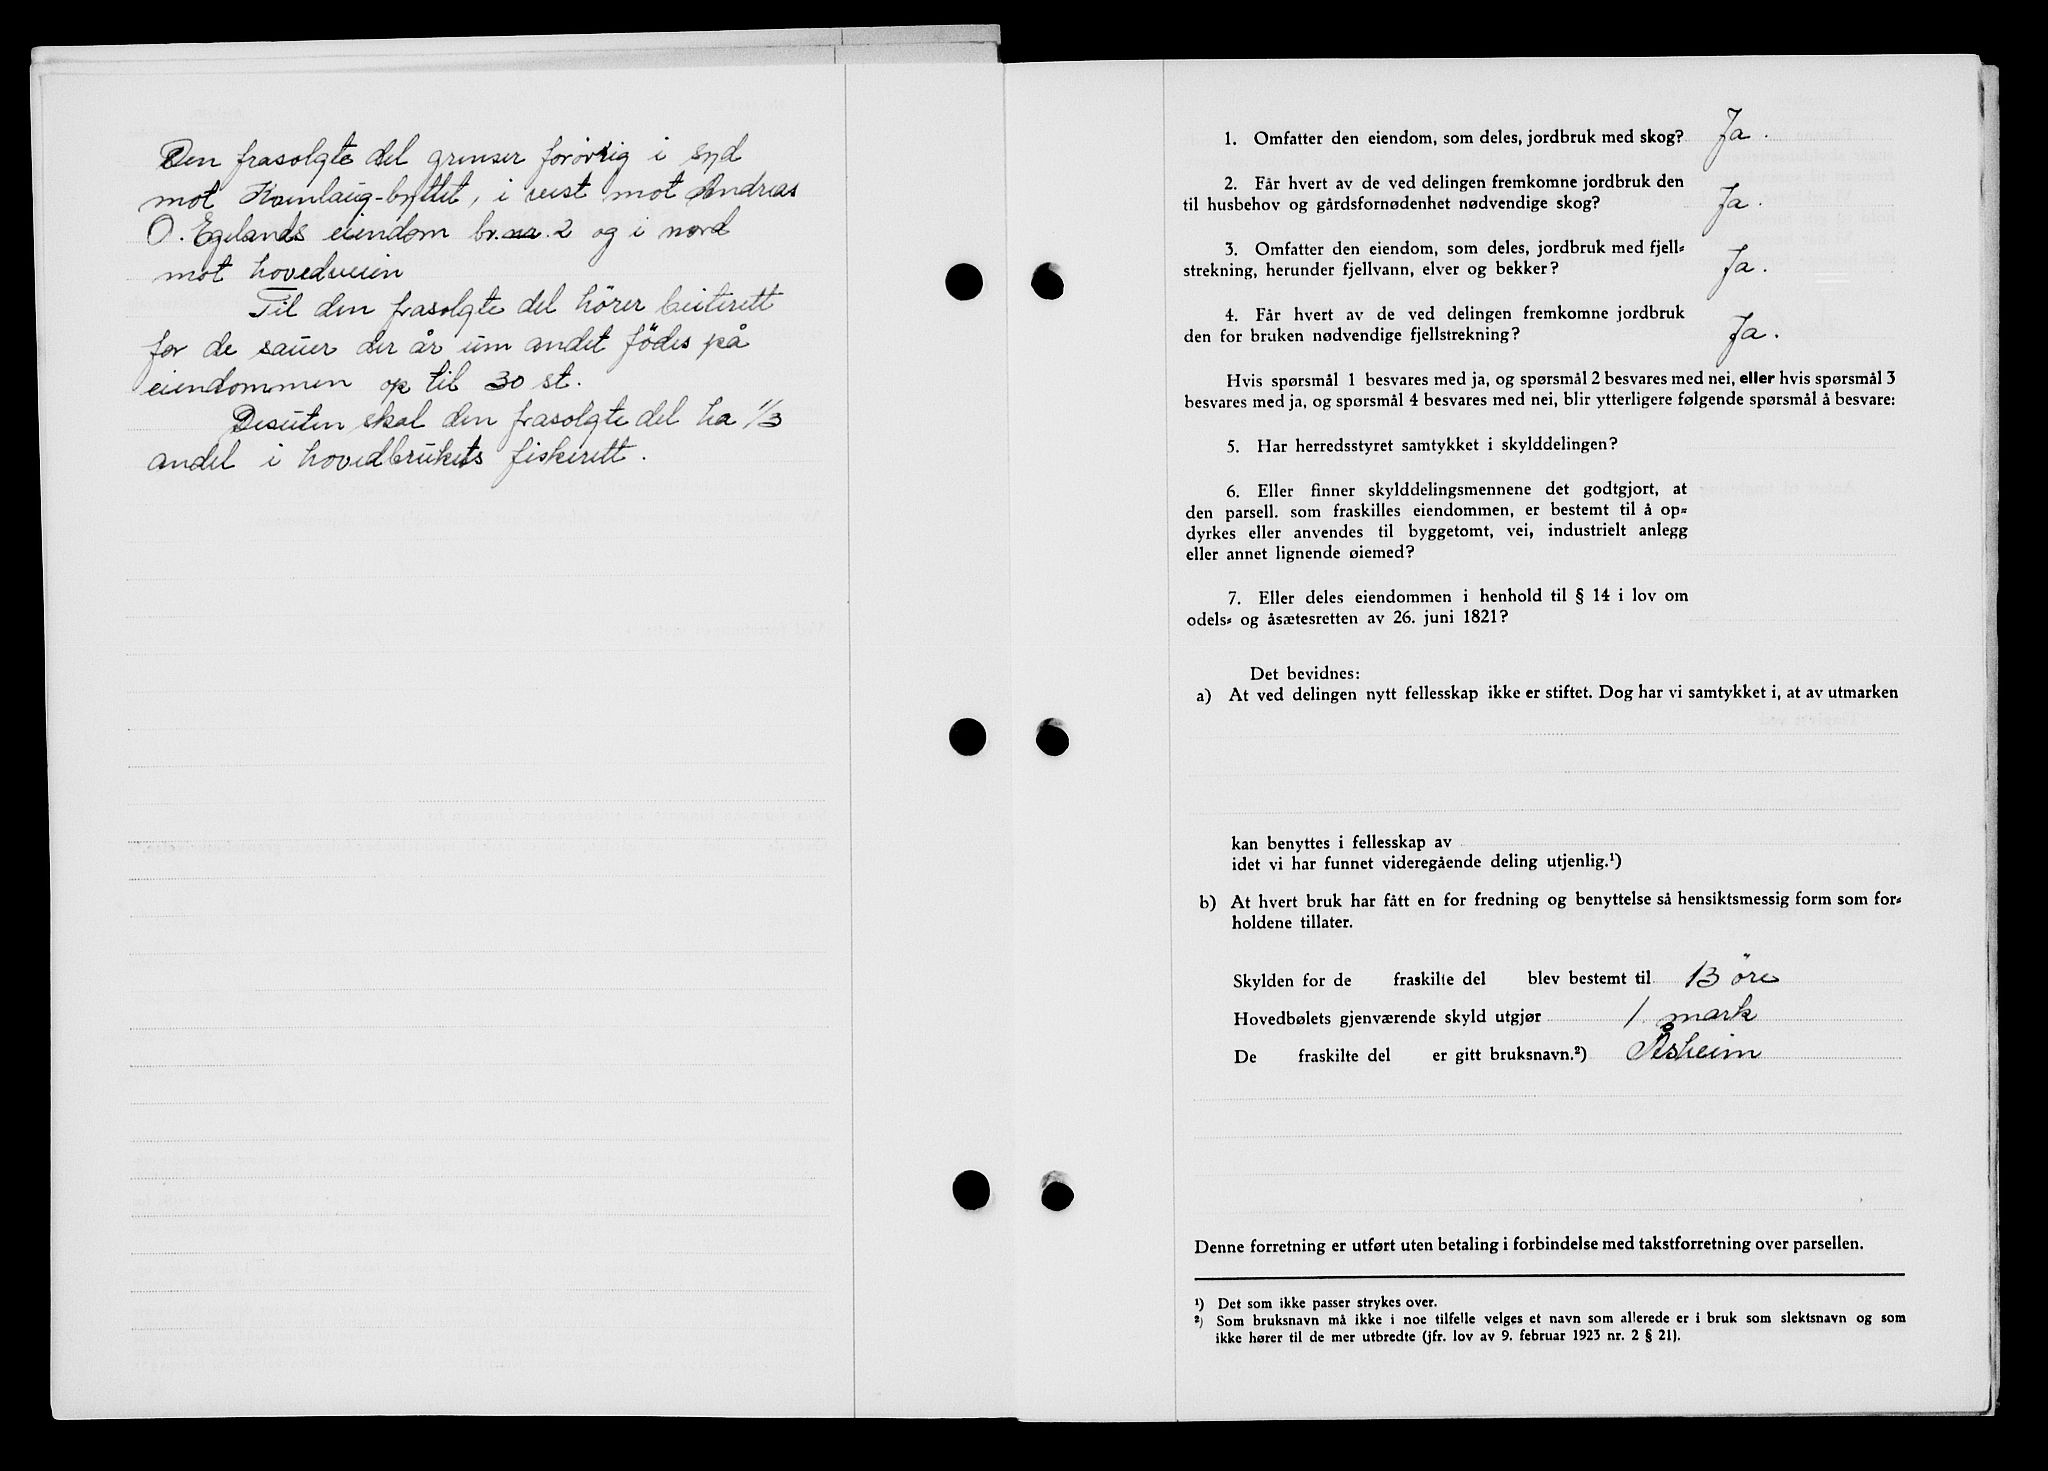 Den frasolgte del grenser forøvrig i syd
mot Kvenlaug-byttet, i vest mot Andreas
O. Egelands eiendom br. nr. 2 og i nord
mot hovedveien
Til den frasolgte del hörer beiterett
for de sauer der år um andet födes på
eiendommen op til 30 st.
Desuten skal den frasolgte del ha 1/3
andel i hovedbrukets fiskerett.
1. Omfatter den eiendom, som deles, jordbruk med skog? Ja.
2. Får hvert av de ved delingen fremkomne jordbruk den
til husbehov og gårdsfornødenhet nødvendige skog? Ja.
3. Omfatter den eiendom, som deles, jordbruk med fjell-
strekning, herunder fjellvann, elver og bekker? Ja.
4. Får hvert av de ved delingen fremkomne jordbruk
den for bruken nødvendige fjellstrekning? Ja.
Hvis spørsmål 1 besvares med ja, og spørsmål 2 besvares med nei, eller hvis spørsmål 3
besvares med ja, og spørsmål 4 besvares med nei, blir ytterligere følgende spørsmål å besvare:
5. Har herredsstyret samtykket i skylddelingen?
6. Eller finner skylddelingsmennene det godtgjort, at
den parsell. som fraskilles eiendommen, er bestemt til å op-
dyrkes eller anvendes til byggetomt, vei, industrielt anlegg
eller annet lignende øiemed?
7. Eller deles eiendommen i henhold til § 14 i lov om
odels- og åsætesretten av 26. juni 1821?
Det bevidnes:
a) At ved delingen nytt fellesskap ikke er stiftet. Dog har vi samtykket i, at av utmarken
kan benyttes i fellesskap av
idet vi har funnet videregående deling utjenlig.¹)
b) At hvert bruk har fått en for fredning og benyttelse så hensiktsmessig form som for-
holdene tillater.
Skylden for de fraskilte del blev bestemt til 13 öre
Hovedbølets gjenværende skyld utgjør 1 mark
De fraskilte del er gitt bruksnavn.²) Åsheim
Denne forretning er utført uten betaling i forbindelse med takstforretning over parsellen.
¹) Det som ikke passer strykes over.
²) Som bruksnavn må ikke i noe tilfelle velges et navn som allerede er i bruk som slektsnavn og som
ikke hører til de mer utbredte (jfr. lov av 9. februar 1923 nr. 2 § 21).